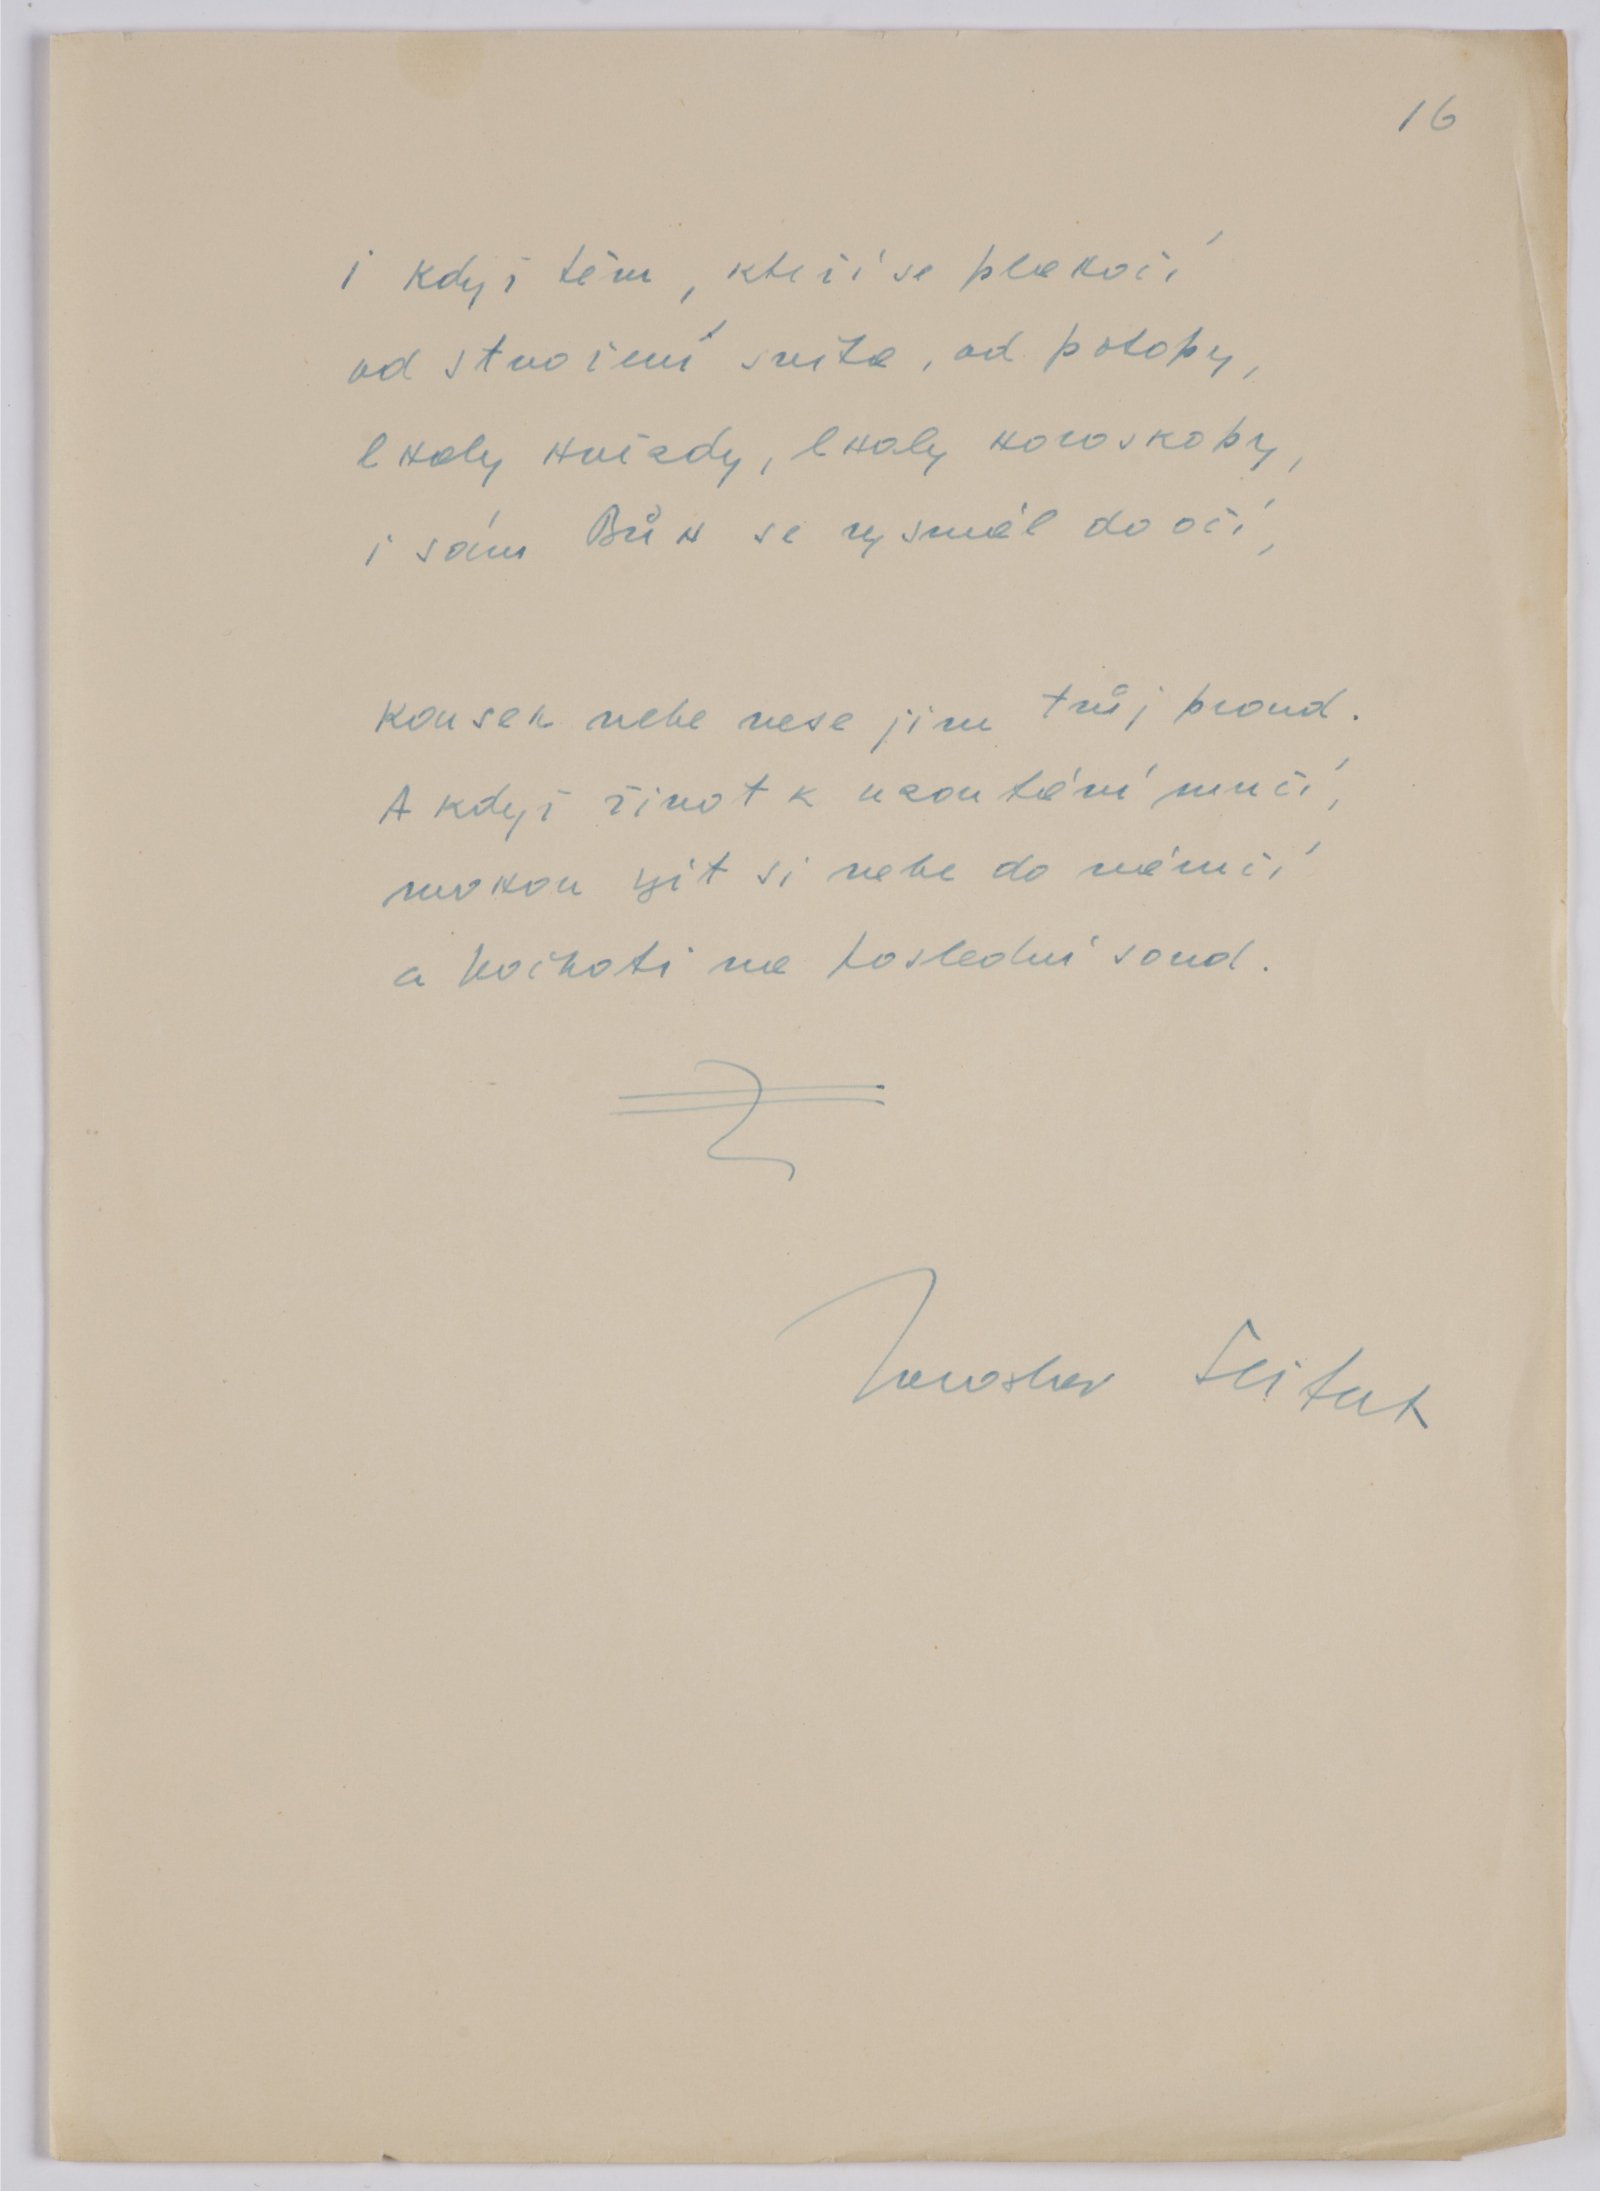 16
i když těm, kteří se plahočí
od stvoření světa, od potopy,
lhaly hvězdy, lhaly horoskopy,
i sám Bůh se vysmál do očí,
kousek nebe nese jim tvůj proud.
A když život k uzoufání mučí,
mohou vzít si nebe do náručí
a počkati na poslední soud.
Jaroslav Seifert